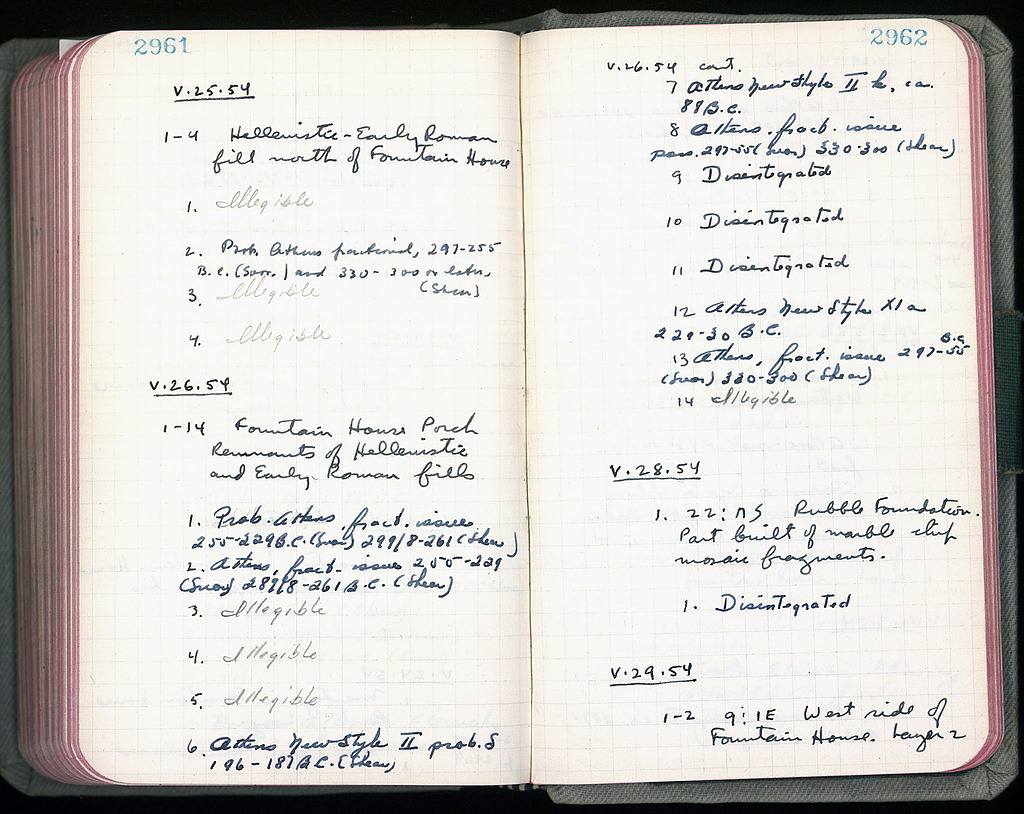 2961
V.25.54
1-4 Hellenistic-Early Roman
fill north of Fountain House
1. Illegible
2. Prob. Athens fractional, 297-255
B.C. (Svor.) and 330-300 or later,
(Shear)
3. Illegible
4. Illegible
V.26.54
1-14 Fountain House Porch
Remnants of Hellenistic
and Early Roman fills
1. Prob. Athens fract. issue
255-229 B.C. (Svor) 299/8-261 (Shear)
2. Athens, fract. issue 255-229
(Svor) 287/8-261 B.C. (Shear)
3. Illegible
4. Illegible
5. Illegible
6. Athens New Style II prob. S
196-187 B.C. (Shear)
2962
V.26.54 cont.
7 Athens New Style II k, ca.
87 B.C.
8 Athens. fract. issue
poss. 297-55 (Svor) 330-300 (Shear)
9 Disintegrated
10 Disintegrated
11 Disintegrated
12 Athens New Style XI a
229-30 B.C.
13 Athens, fract. issue 297-55 B.C.
(Svor) 330-300 (Shear)
14 Illegible
V.28.54
1. 22: Rubble Foundation.
Part built of marble chip
mosaic fragments.
1. Disintegrated
V.29.54
1-2 9:1E West side of
Fountain House. Layer 2